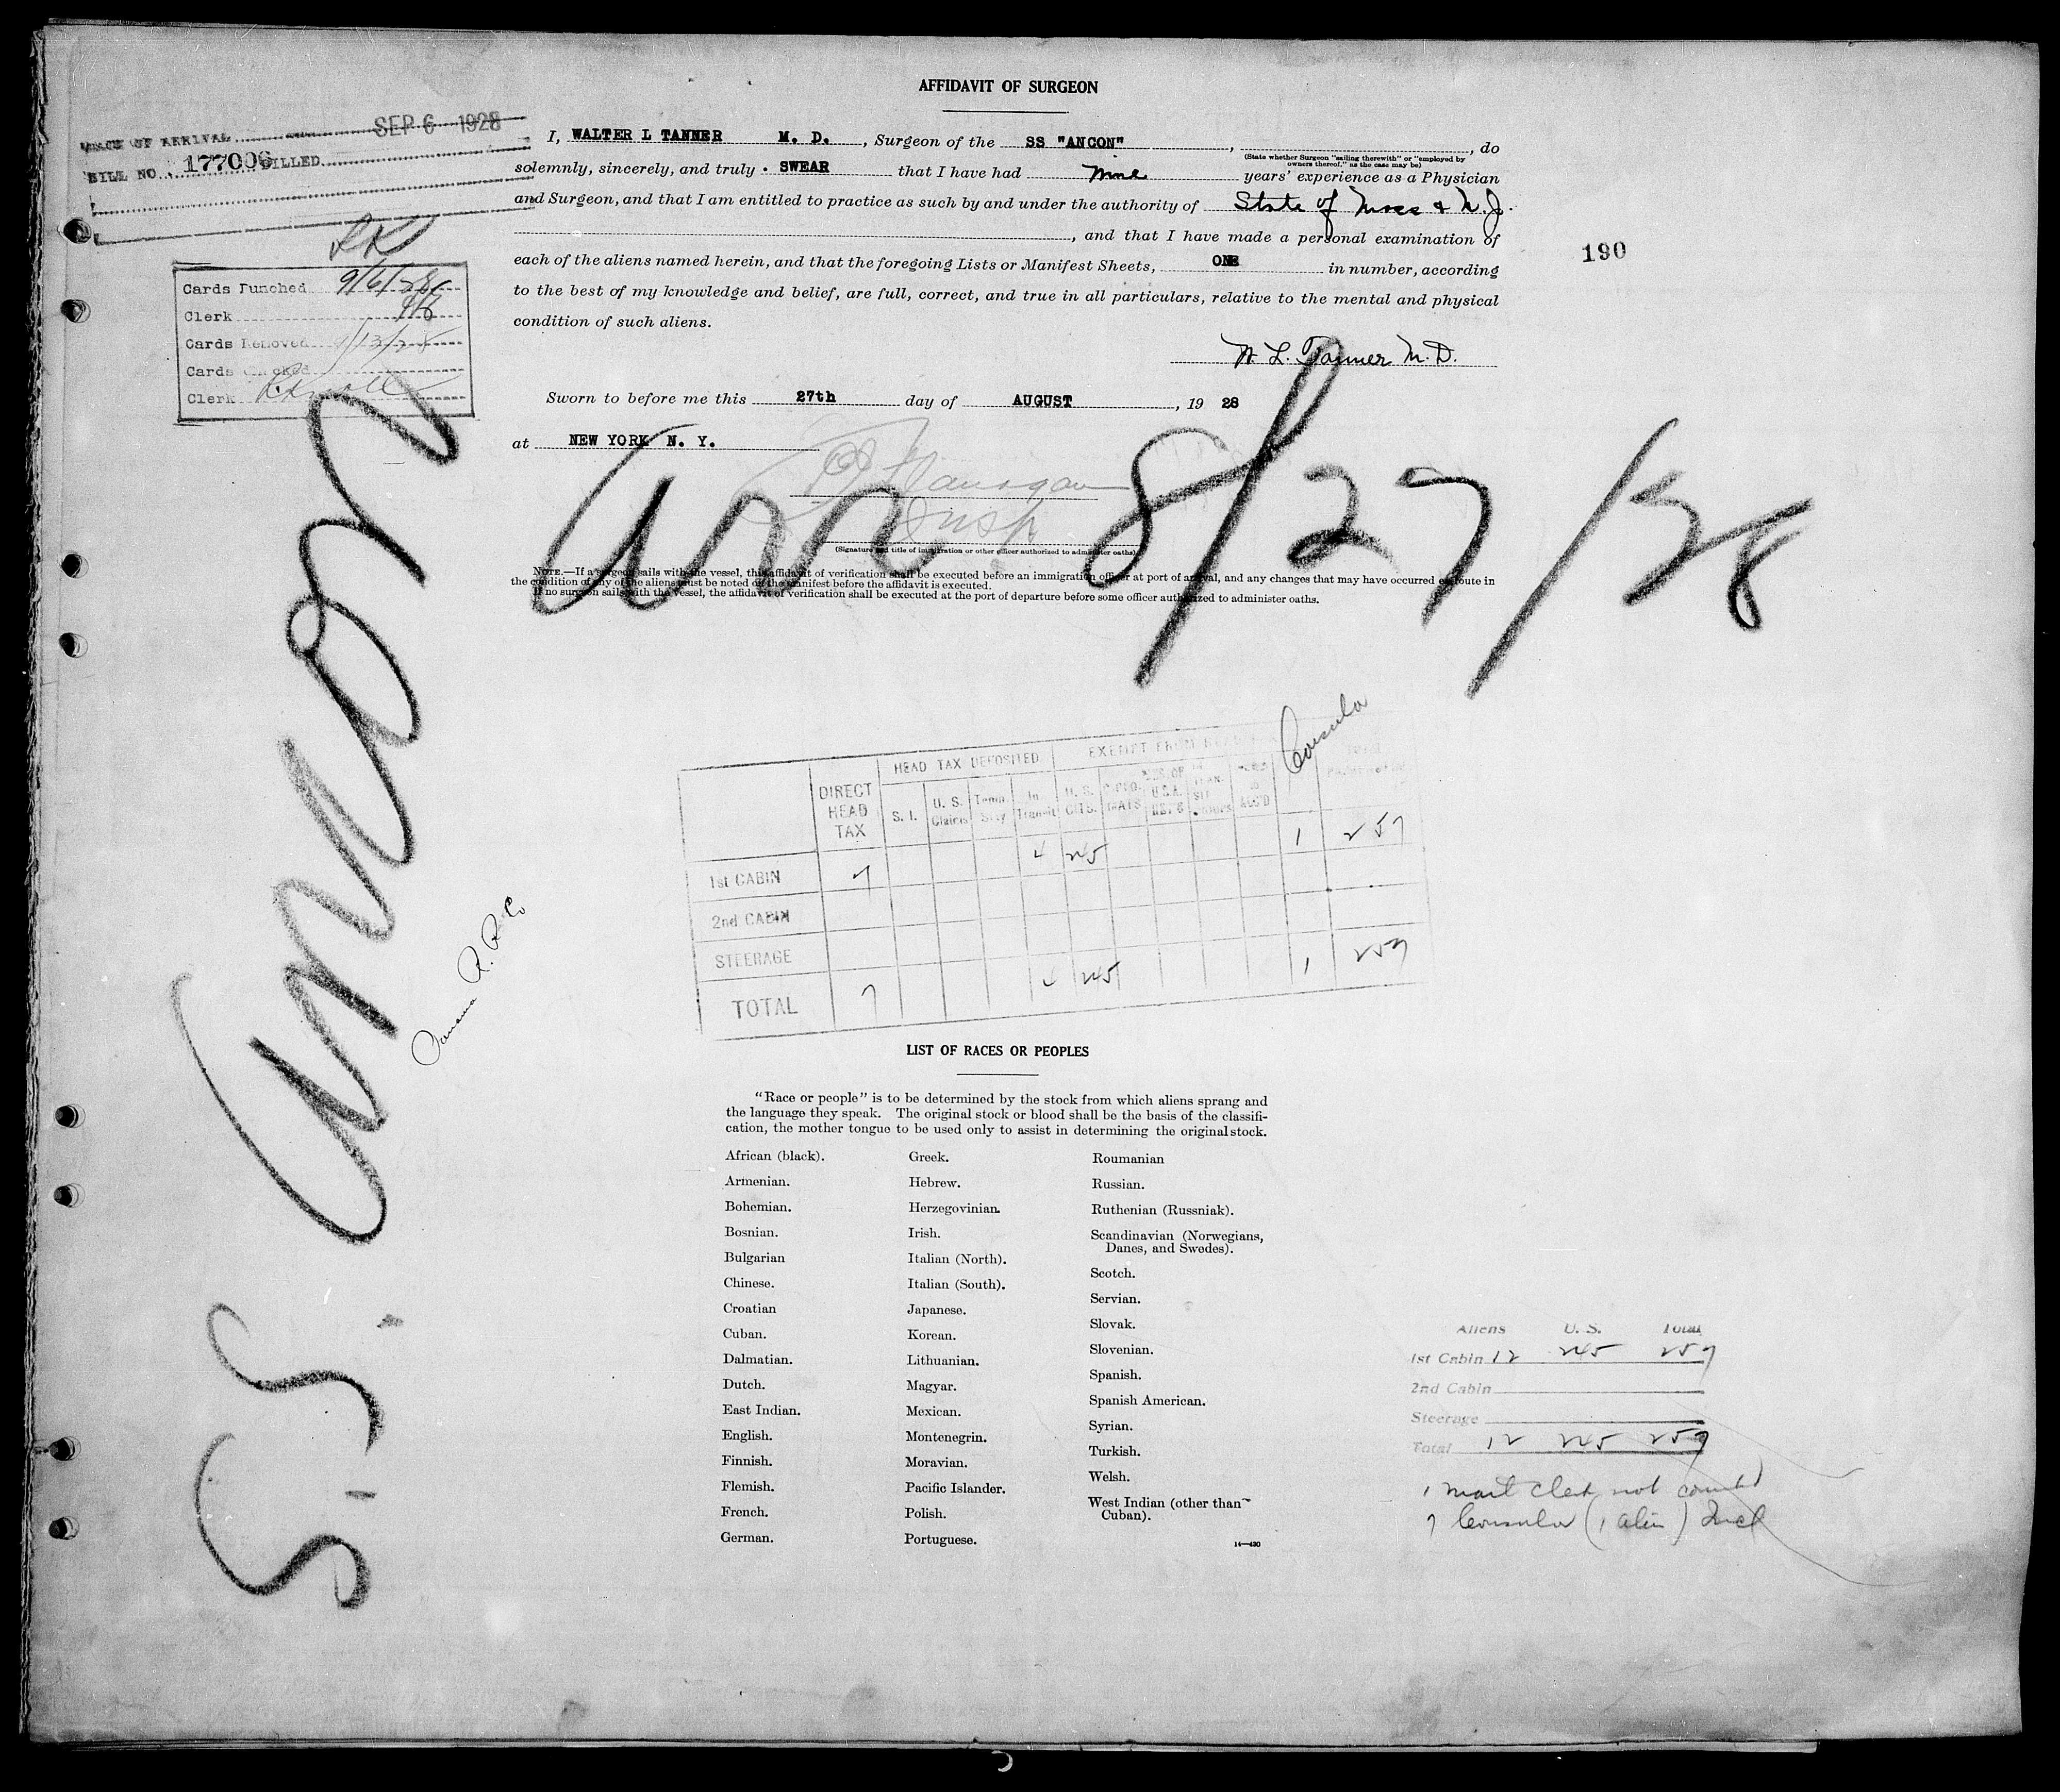 AFFIDAVIT OF SURGEON
OF ARRIVAL SEP 6 1928
BILL NO. 177006 BILLED
I, WALTER L TANNER M. D., Surgeon of the SS "ANCON", , do
(State whether Surgeon "sailing therewith" or "employed by
owners thereof," as the case may be)
solemnly, sincerely, and truly SWEAR that I have had Nine years' experience as a Physician
and Surgeon, and that I am entitled to practice as such by and under the authority of State of Mass & N.J.
, and that I have made a personal examination of
each of the aliens named herein, and that the foregoing Lists or Manifest Sheets, ONE in number, according
to the best of my knowledge and belief, are full, correct, and true in all particulars, relative to the mental and physical
condition of such aliens.
190
Cards Punched 9/6/28
Clerk
Cards Removed
Cards Checked
Clerk
W. L. Tanner M. D.
Sworn to before me this 27th day of AUGUST, 1928
at NEW YORK N. Y.
Flanagan
Insp
(Signature and title of immigration or other officer authorized to administer oaths)
Arr 8/27/28
NOTE.—If a surgeon sails with the vessel, this affidavit of verification shall be executed before an immigration officer at port of arrival, and any changes that may have occurred en route in
the condition of any of the aliens must be noted on the manifest before the affidavit is executed.
If no surgeon sails with the vessel, the affidavit of verification shall be executed at the port of departure before some officer authorized to administer oaths.
S.S. Ancon
Panama R. R Co
DIRECT HEAD TAX
HEAD TAX DEPOSITED
EXEMPT FROM
Consula
S. I.
U. S. Claims
Temp. Stay
In Transit
U. S. CITS.
1st CABIN 7 4 245 1 257
2nd CABIN
STEERAGE
TOTAL 7 4 245 1 257
LIST OF RACES OR PEOPLES
"Race or people" is to be determined by the stock from which aliens sprang and
the language they speak. The original stock or blood shall be the basis of the classifi-
cation, the mother tongue to be used only to assist in determining the original stock.
African (black).
Armenian.
Bohemian.
Bosnian.
Bulgarian
Chinese.
Croatian
Cuban.
Dalmatian.
Dutch.
East Indian.
English.
Finnish.
Flemish.
French.
German.
Greek.
Hebrew.
Herzegovinian.
Irish.
Italian (North).
Italian (South).
Japanese.
Korean.
Lithuanian.
Magyar.
Mexican.
Montenegrin.
Moravian.
Pacific Islander.
Polish.
Portuguese.
Roumanian
Russian.
Ruthenian (Russniak).
Scandinavian (Norwegians,
Danes, and Swedes).
Scotch.
Servian.
Slovak.
Slovenian.
Spanish.
Spanish American.
Syrian.
Turkish.
Welsh.
West Indian (other than
Cuban).
14—430
Aliens U. S. Total
1st Cabin 12 245 257
2nd Cabin
Steerage
Total 12 245 257
1 mail clerk not counted
7 Consula (1 alien) Incl